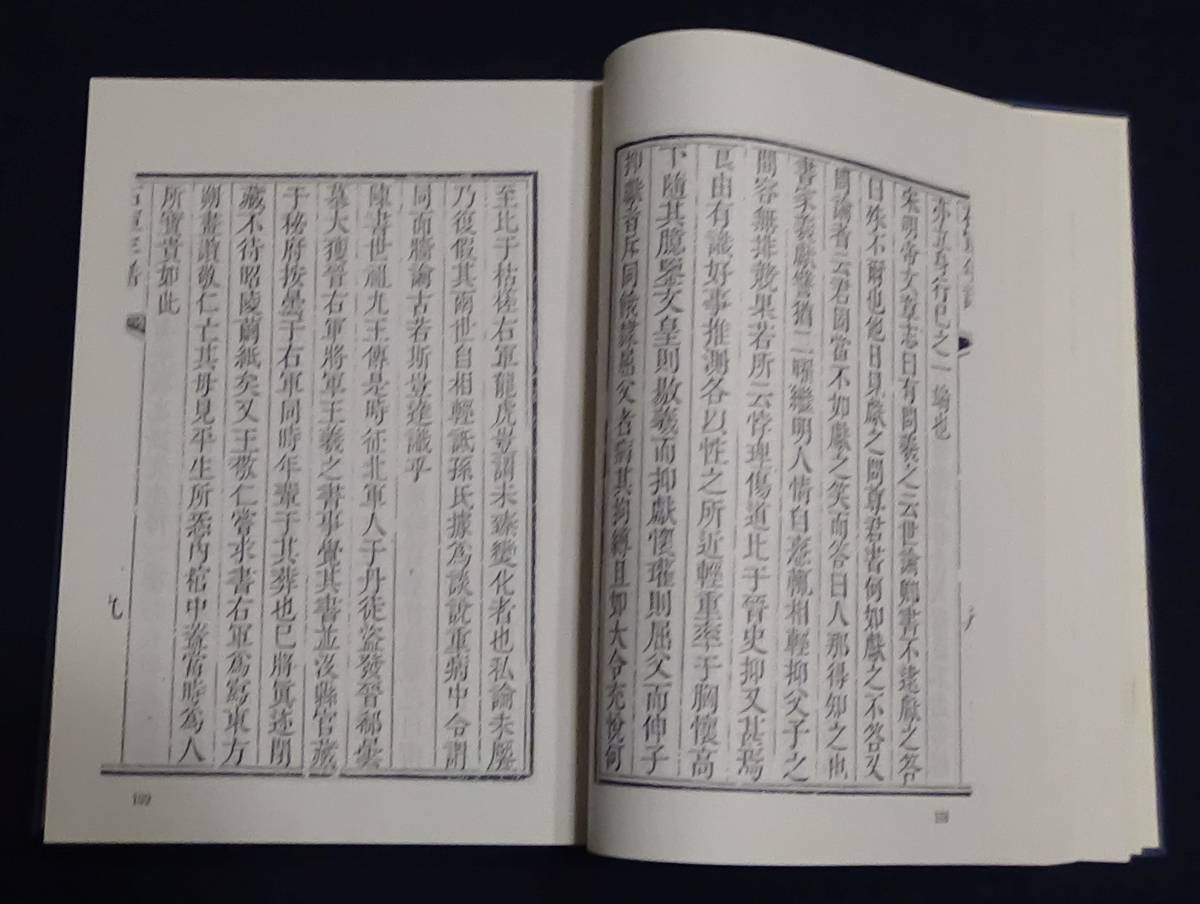 亦立身行己之一端也
宋明帝文章志曰有問羲之云世論卿書不逮獻之答
曰殊不爾也他日見獻之問尊君書何如獻之不答又
問論者云君固當不如獻之笑而答曰人那得知之也
書家羲獻譬猶二曜繼明人情自憙輒相輕抑父子之
間容無排競果若所云悖理傷道比于晉史抑又甚焉
良由有識好事推測各以性之所近輕重率于胸懷高
下隨其臆鑒文皇則揚羲而抑獻懷瓘則屈父而伸子
抑繫者斥同餓隸屈父者病其拘縛且如大令充悅何
至比于枯槎右軍龍虎豈謂未臻變化者也私論未壓
乃復假其兩世自相輕詆孫氏據為談說重病中合謂
同而牆論古若斯豈達識乎
陳書世祖九王傳是時征北軍人于丹徒盜發晉郗曇
墓大獲晉右軍將軍王羲之書事覺其書並沒縣官藏
于秘府按曇于右軍同時年輩于其葬也已將眞迹閉
藏不待昭陵繭紙矣又王敬仁嘗求書右軍為寫東方
朔畫讚敬仁亡其母見平生所悉內棺中蓋當時為人
所寶貴如此
九
109